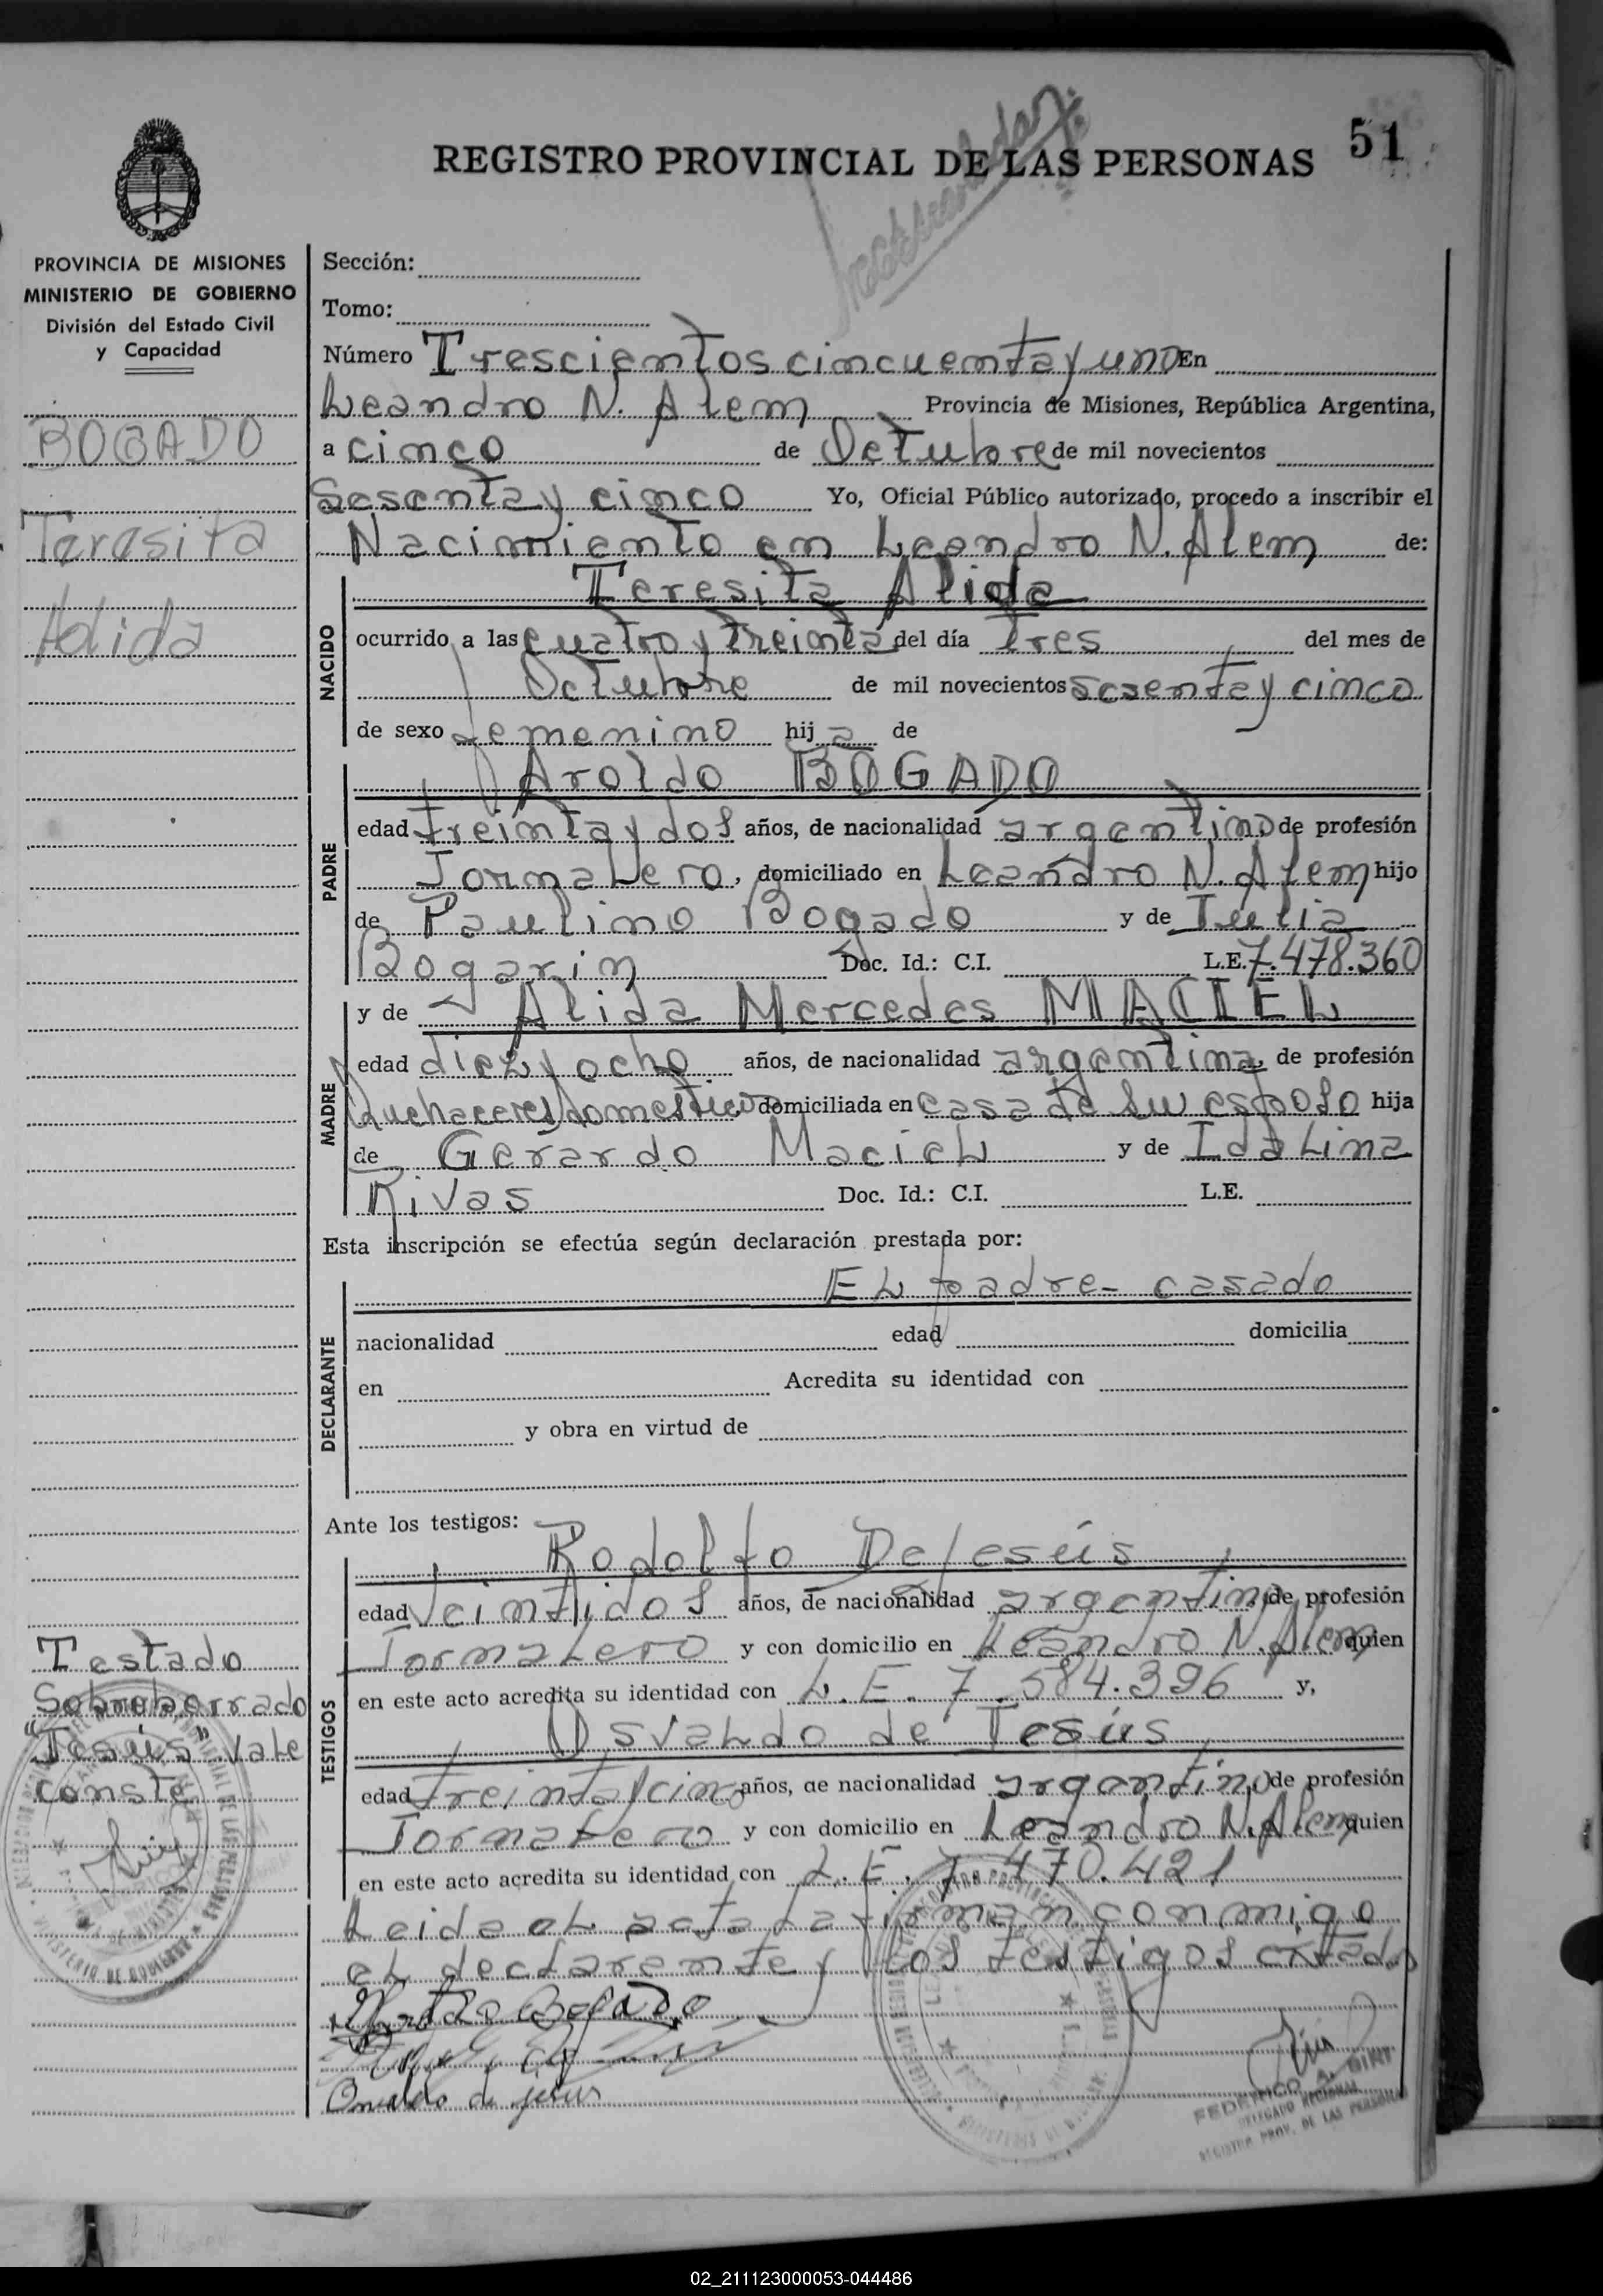 51
REGISTRO PROVINCIAL DE LAS PERSONAS
PROVINCIA DE MISIONES
MINISTERIO DE GOBIERNO
División del Estado Civil
y Capacidad
BOGADO
Teresita
Alida
Sección:
Tomo:
Número Trescientos cincuenta y uno En
Leandro N. Alem Provincia de Misiones, República Argentina,
a cinco de Octubre de mil novecientos
Sesenta y cinco Yo, Oficial Público autorizado, procedo a inscribir el
Nacimiento en Leandro N. Alem de:
NACIDO
Teresita Alida
ocurrido a las cuatro y treinta del día tres del mes de
Octubre de mil novecientos sesenta y cinco
de sexo femenino hija de
PADRE
Aroldo BOGADO
edad treinta y dos años, de nacionalidad argentino de profesión
Jornalero, domiciliado en Leandro N. Alem hijo
de Paulino Bogado y de Julia
Bogarin Doc. Id.: C.I. L.E. 7.478.360
MADRE
y de Alida Mercedes MACIEL
edad diez y ocho años, de nacionalidad argentina, de profesión
Quehaceres domesticos domiciliada en casa de su esposo hija
de Gerardo Maciel y de Idalina
Rivas Doc. Id.: C.I. L.E.
Esta inscripción se efectúa según declaración prestada por:
DECLARANTE
El padre - casado
nacionalidad edad domicilia
en Acredita su identidad con
y obra en virtud de
Ante los testigos:
TESTIGOS
Rodolfo DeJesús
edad Veintidos años, de nacionalidad argentino de profesión
Jornalero y con domicilio en Leandro N. Alem quien
en este acto acredita su identidad con L.E. 7.584.396 y,
Osvaldo de Jesús
edad treinta y cinco años, de nacionalidad argentino de profesión
Jornalero y con domicilio en Leandro N. Alem quien
en este acto acredita su identidad con L.E. 7.470.421
Leida el acta la firman conmigo
el declarente y los testigos citados
Testado
Sobreborrado
"Jesús" Vale
conste
Bogado
Osvaldo de jesus
FEDERICO A.
DELEGADO REGIONAL
REGISTRO PROV. DE LAS PERSONAS
MINISTERIO DE GOBIERNO
02_211123000053-044486